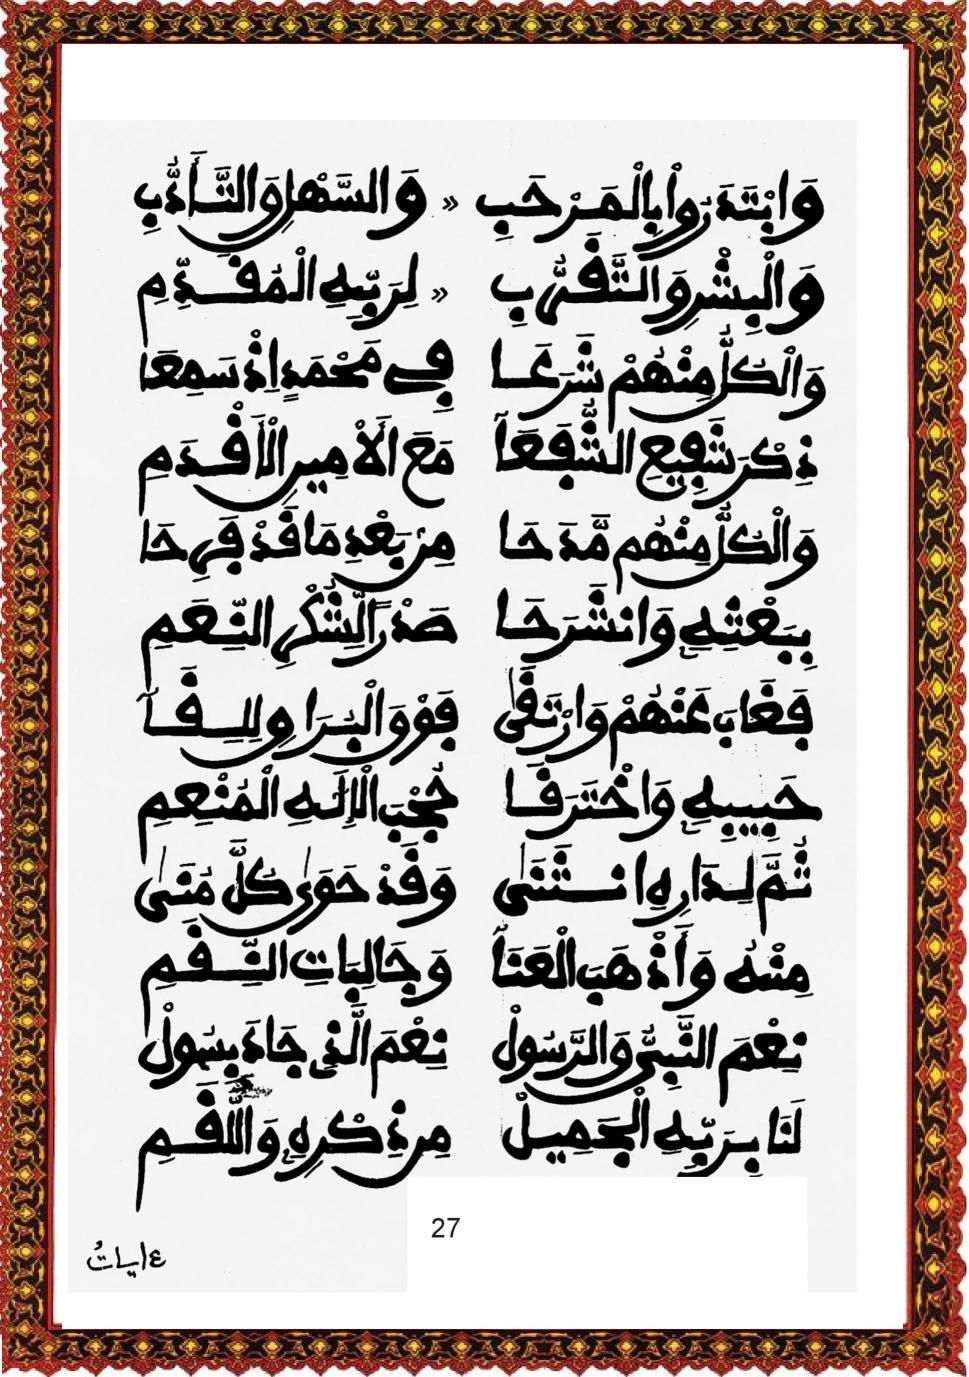 وَابْتَدَرُوا بِالْمَرْحَبِ » وَالسَّهْلِ وَالتَّأَدُّبِ
وَالْبِشْرِ وَالتَّقَرُّبِ » لِرَبِّهِ الْمُقَدِّمِ
وَالْكُلُّ مِنْهُمْ شَرَعَا فِي مَحْمَدٍ اِذْ سَمِعَا
ذِكْرَ شَفِيعِ الشُّفَعَآ مَعَ الْأَمِيرِ الْأَقْدَمِ
وَالْكُلُّ مِنْهُم مَّدَحَا مِنْ بَعْدِ مَا قَدْ فَرِحَا
بِبَعْثِهِ وَانْشَرَحَا صَدْرًا لِّشُكْرِ النِّعَمِ
فَغَابَ عَنْهُمْ وَارْتَقَى فَوْقَ الْبُرَاقِ لِلِقَآ
حَبِيبِهِ وَاخْتَرَقَا حُجْبَ الْإِلَهِ الْمُنْعِمِ
ثُمَّ لِدَارِهِ انْثَنَى وَقَدْ حَوَى كُلَّ مُنَى
مِنْهُ وَأَذْهَبَ الْعَنَآ وَجَالِبَاتِ النِّقَمِ
نِعْمَ النَّبِيُّ وَالرَّسُولْ نِعْمَ الَّذِي جَادَ بِسُولْ
لَنَا بِرَبِّهِ الْجَمِيلْ مِنْ ذِكْرِهِ وَاللُّقَمِ
27
٤ ابيات